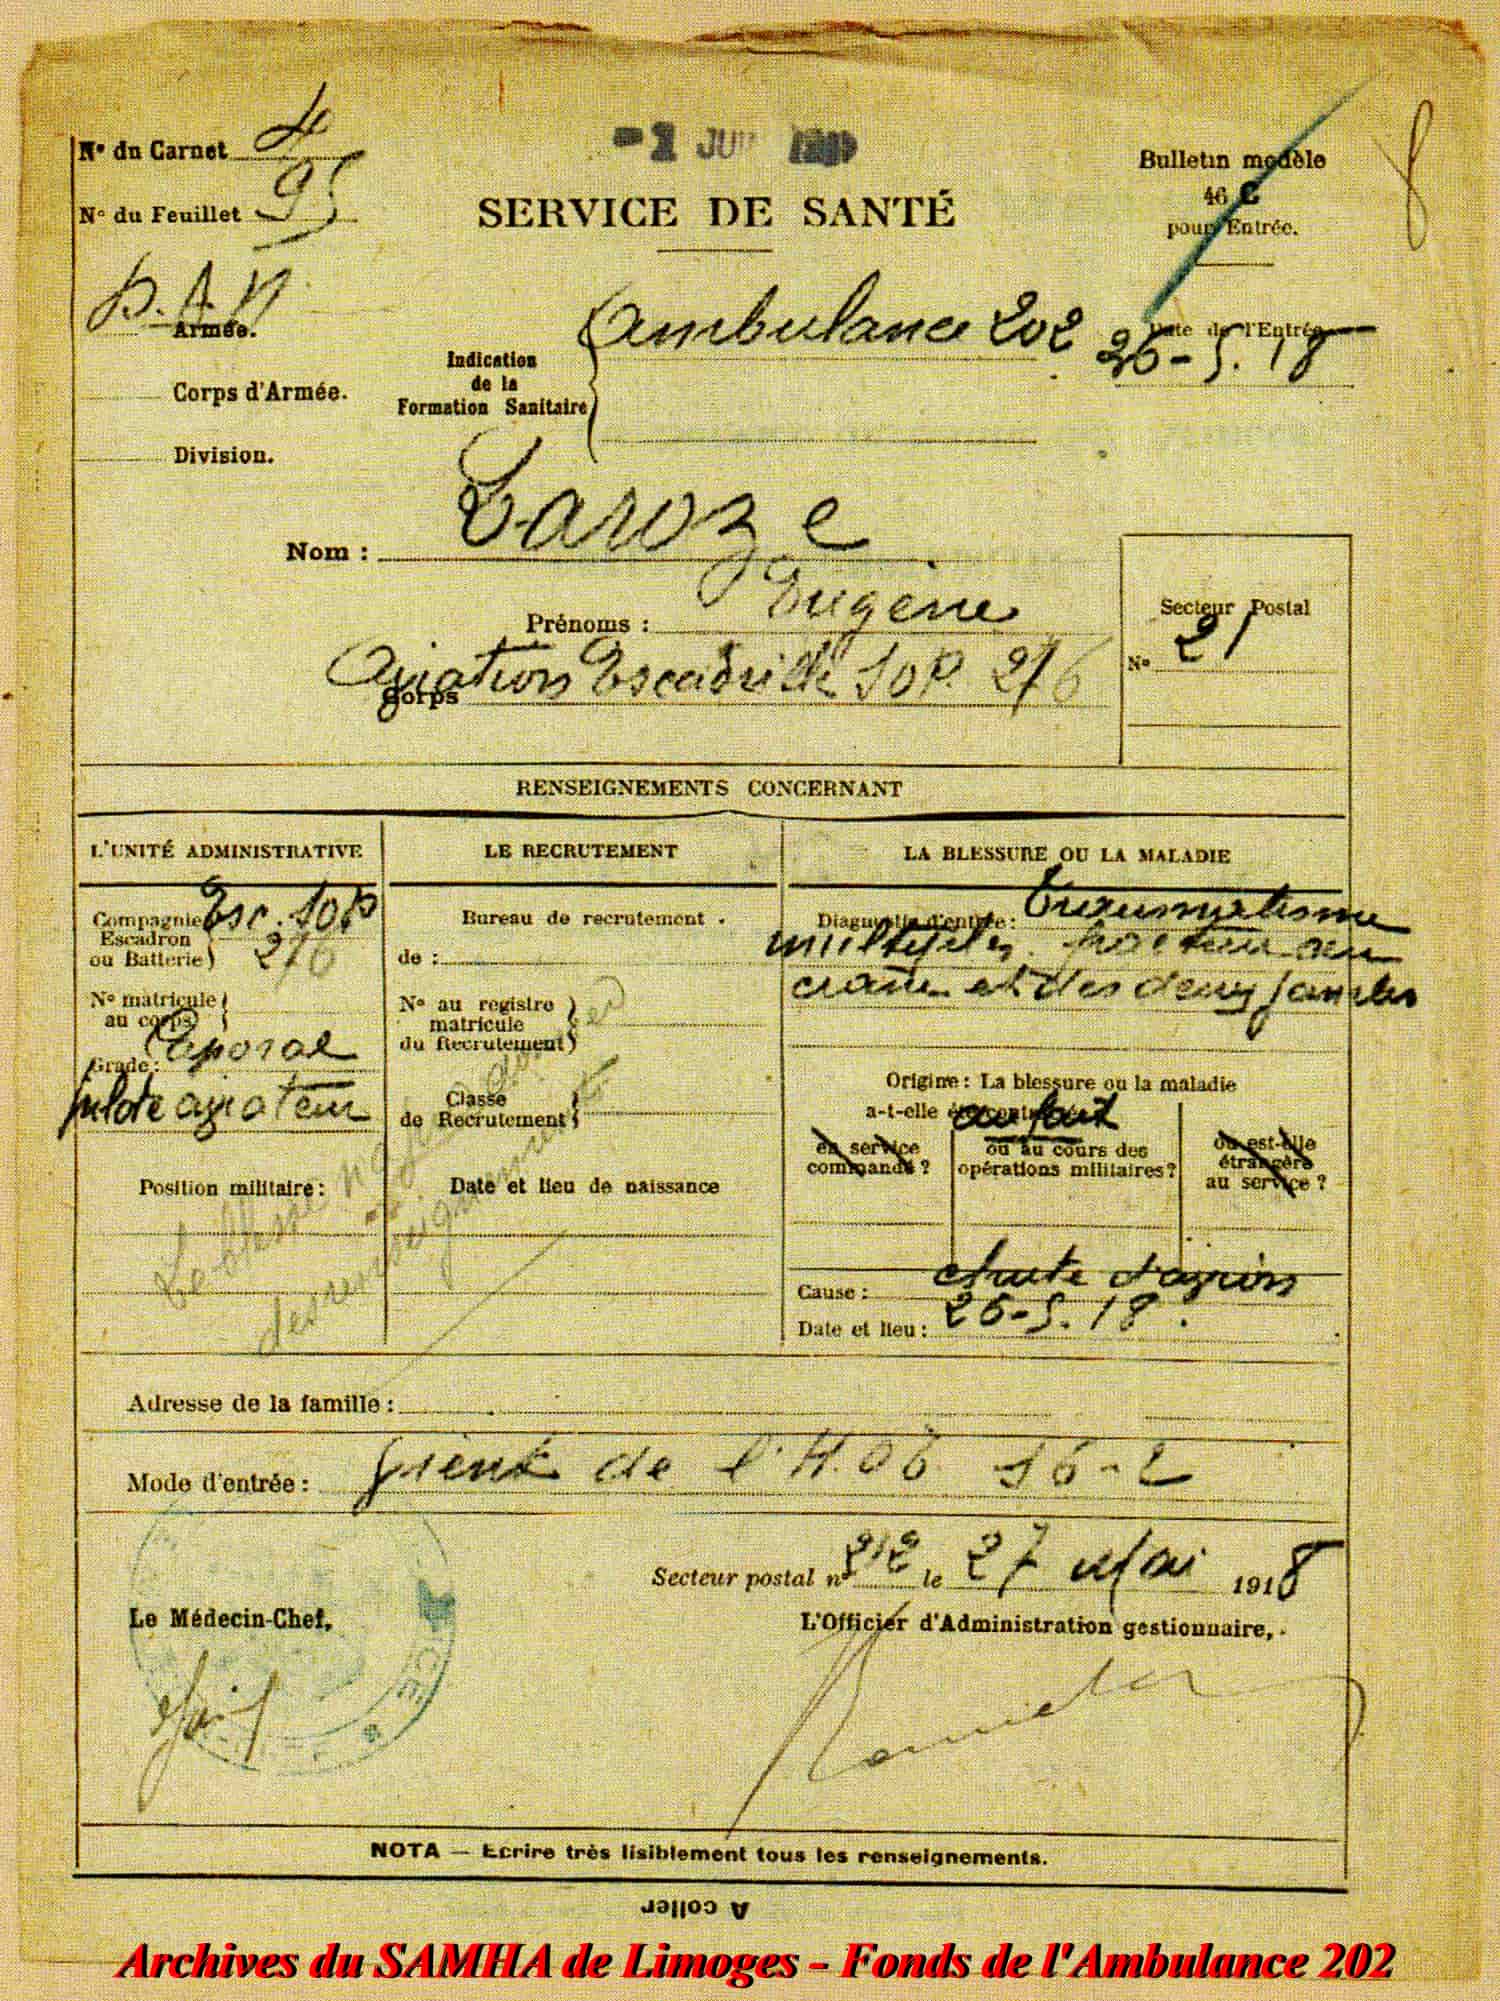 N° du Carnet 4
N° du Feuillet 95
-1 JUI
SERVICE DE SANTÉ
Bulletin modèle
46 C
pour Entrée.
D. A. N
Armée.
Corps d'Armée.
Division.
Indication
de la
Formation Sanitaire
Ambulance 202
Date de l'Entrée
26-5.18
Nom : Laroze
Prénoms : Eugène
Corps Aviation Escadrille SOP. 276
Secteur Postal
N° 21
RENSEIGNEMENTS CONCERNANT
L'UNITÉ ADMINISTRATIVE
Compagnie
Escadron
ou Batterie
Esc. SOP
276
N° matricule
au corps
Grade : Caporal
pilote aviateur
Position militaire :
LE RECRUTEMENT
Bureau de recrutement .
de :
N° au registre
matricule
du Recrutement
Classe
de Recrutement
Date et lieu de naissance
Le blessé n'a pu donner
des renseignements
LA BLESSURE OU LA MALADIE
Diagnostic d'entrée : Traumatisme
multiples. fracture du
crâne et des deux jambes
Origine : La blessure ou la maladie
a-t-elle été contractée
en service
commandé ?
ou au cours des
opérations militaires ?
ou est-elle
étrangère
au service ?
Cause : chute d'avion
Date et lieu : 26-5.18.
Adresse de la famille :
Mode d'entrée : Vient de l'H.O6 16-2
Secteur postal n° 212 le 27 Mai 1918
Le Médecin-Chef,
L'Officier d'Administration gestionnaire,
NOTA — Ecrire très lisiblement tous les renseignements.
A coller
Archives du SAMHA de Limoges - Fonds de l'Ambulance 202